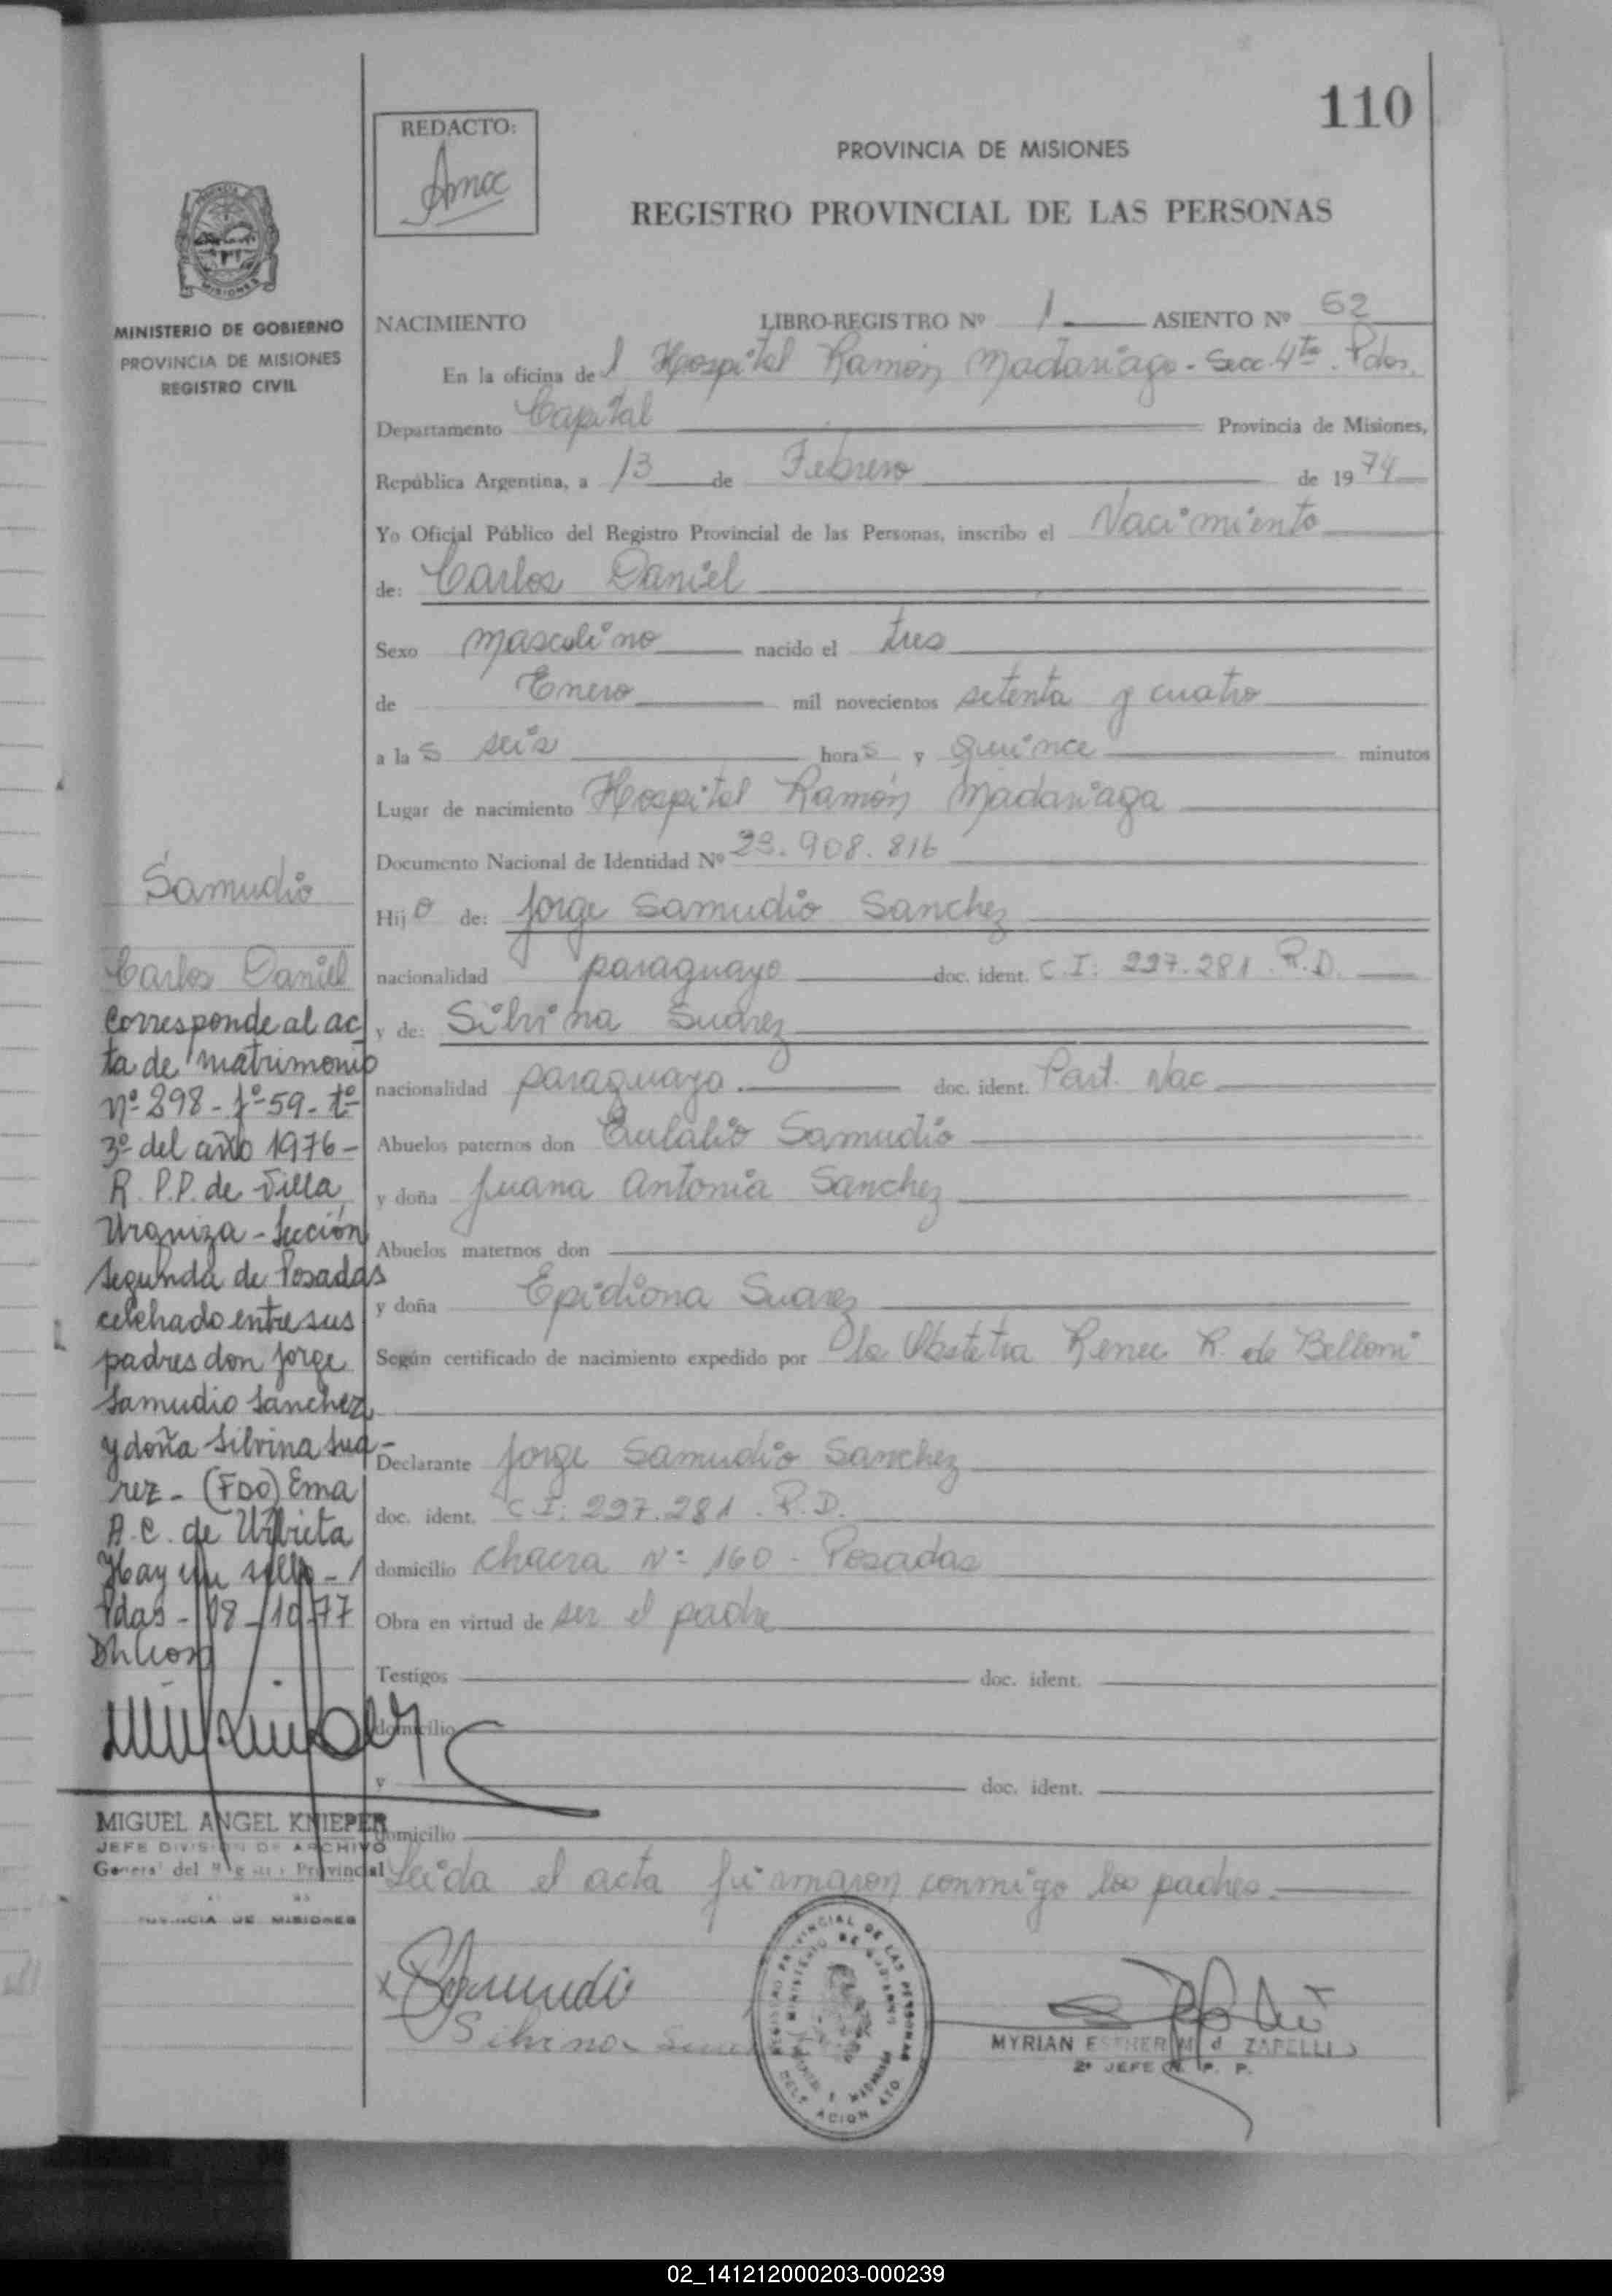 110
REDACTO:
PROVINCIA DE MISIONES
REGISTRO PROVINCIAL DE LAS PERSONAS
MINISTERIO DE GOBIERNO
PROVINCIA DE MISIONES
REGISTRO CIVIL
NACIMIENTO LIBRO-REGISTRO Nº 1 ASIENTO Nº 62
En la oficina de l Hospital Ramón Madariaga - Secc. 4ta. Pdas.
Departamento Capital Provincia de Misiones,
República Argentina, a 13 de Febrero de 1974
Yo Oficial Público del Registro Provincial de las Personas, inscribo el Nacimiento
de: Carlos Daniel
Sexo masculino nacido el tres
de Enero mil novecientos setenta y cuatro
a la s seis hora s y quince minutos
Lugar de nacimiento Hospital Ramón Madariaga
Documento Nacional de Identidad Nº 23.908.816
Hij o de: Jorge Samudio Sanchez
nacionalidad paraguayo doc. ident. C.I: 227.281. R.D.
y de: Silvina Suarez
nacionalidad paraguaya. doc. ident. Part. Nac
Abuelos paternos don Eulalio Samudio
y doña Juana Antonia Sanchez
Abuelos maternos don
y doña Epidiona Suarez
Según certificado de nacimiento expedido por la Obstetra Renee R. de Belloni
Declarante Jorge Samudio Sanchez
doc. ident. C.I: 227.281. R.D.
domicilio Chacra Nº 160 - Posadas
Obra en virtud de ser el padre
Testigos doc. ident.
domicilio
y doc. ident.
domicilio
Leida el acta firmaron conmigo los padres.
Samudio
Carlos Daniel
Corresponde al ac
ta de matrimonio
nº 298 - fº 59 - tº
3º del año 1976 -
R. P.P. de Villa
Urquiza - Sección
Segunda de Posadas
celebrado entre sus
padres don Jorge
Samudio Sanchez
y doña Silvina Sua-
rez - (FDO) Ema
A. C. de Urbieta
Hay un sello -
Pdas - 08 - 10 - 77
MIGUEL ANGEL KNIEPER
JEFE DIVISION DE ARCHIVO
General del Registro Provincial
PROVINCIA DE MISIONES
Samudio
Silvina Suarez
REGISTRO PROVINCIAL DE LAS PERSONAS
MINISTERIO DE GOBIERNO
MYRIAN ESTHER M. d ZAPELLI
2º JEFE R. P. P.
02_141212000203-000239